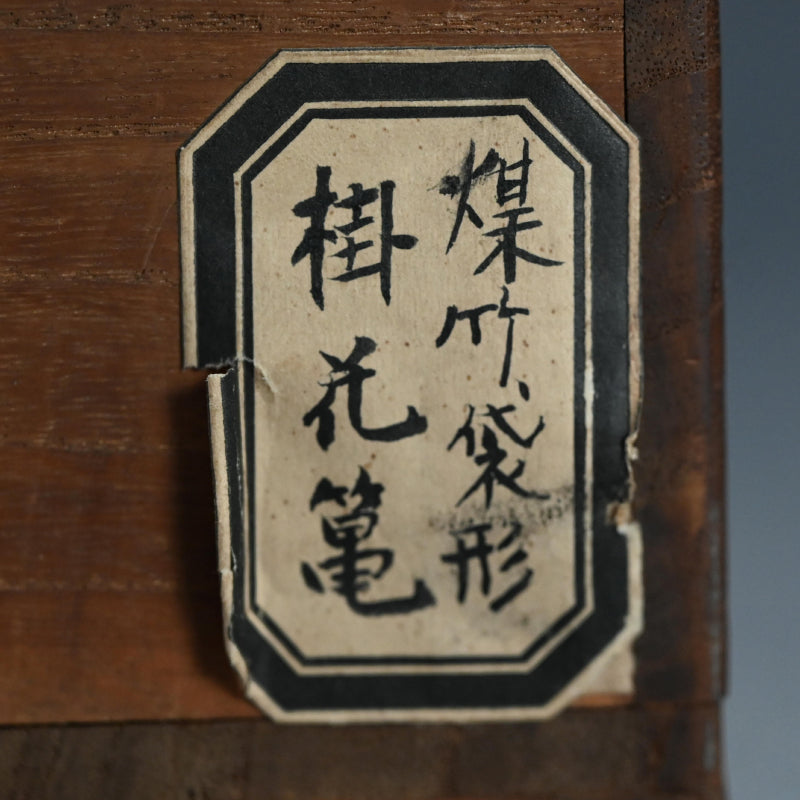 煤竹、袋形
掛花篭